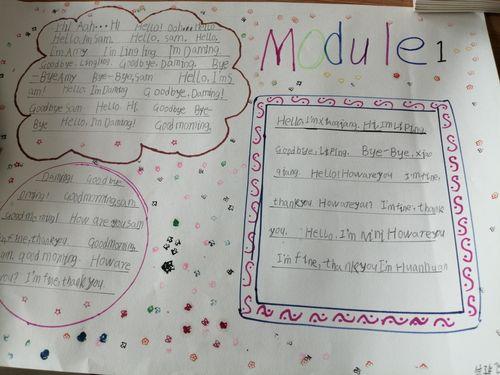 Hi! Aah... Hi Hello! Ooh... Hello
Hello, I'm Sam. Hello, Sam. Hello,
I'm Amy I'm Lingling I'm Daming.
Goodbye, Lingling. Goodbye, Daming. Bye
-Bye Amy Bye-Bye, Sam Hello, I'm S
am! Hello, I'm Daming Goodbye, Daming!
Goodbye Sam Hello Hi, Goodbye Bye-
Bye Hello, I'm Daming! Goodmorning,
Daming! Goodbye
Daming! Goodmorning, sam
Goodmorning! How are you sam
I'm fine, thankyou. Goodmorning
good morning. How are
you? I'm fine, thank you.
Module 1
Hello, I'm xiaoqiang. Hi, I'm Li Ping.
Goodbye, Li Ping. Bye-Bye, xiao
qiang. Hello! How are you I'm fine,
thank you How are you? I'm fine, thank
you. Hello, I'm Minj How are you
I'm fine, thank you I'm Huanhuan